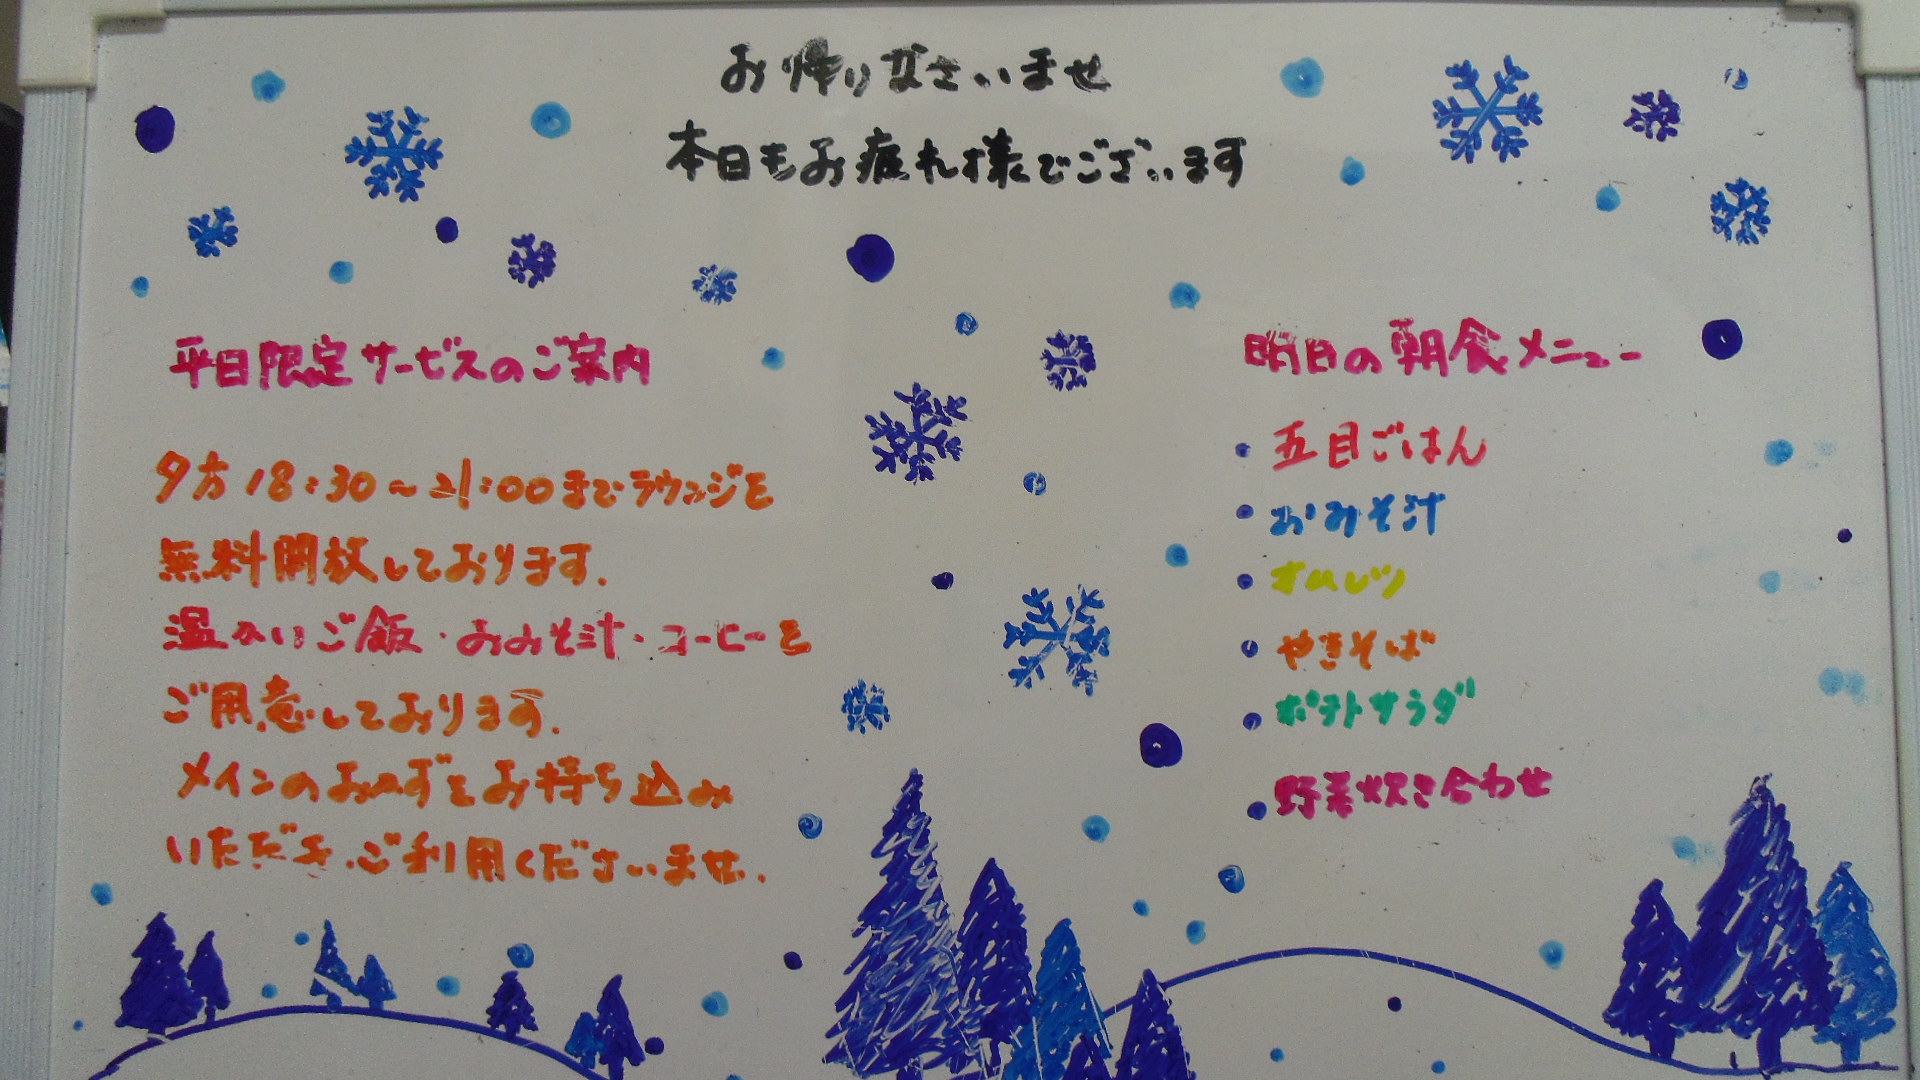 お帰りなさいませ
本日もお疲れ様でございます
平日限定サービスのご案内
夕方18:30～21:00までラウンジを
無料開放しております.
温かいご飯・おみそ汁・コーヒーを
ご用意しております.
メインのおかずをお持ち込み
いただき.ご利用くださいませ.
明日の朝食メニュー
・五目ごはん
・おみそ汁
・オムレツ
・やきそば
・ポテトサラダ
・野菜炊き合わせ